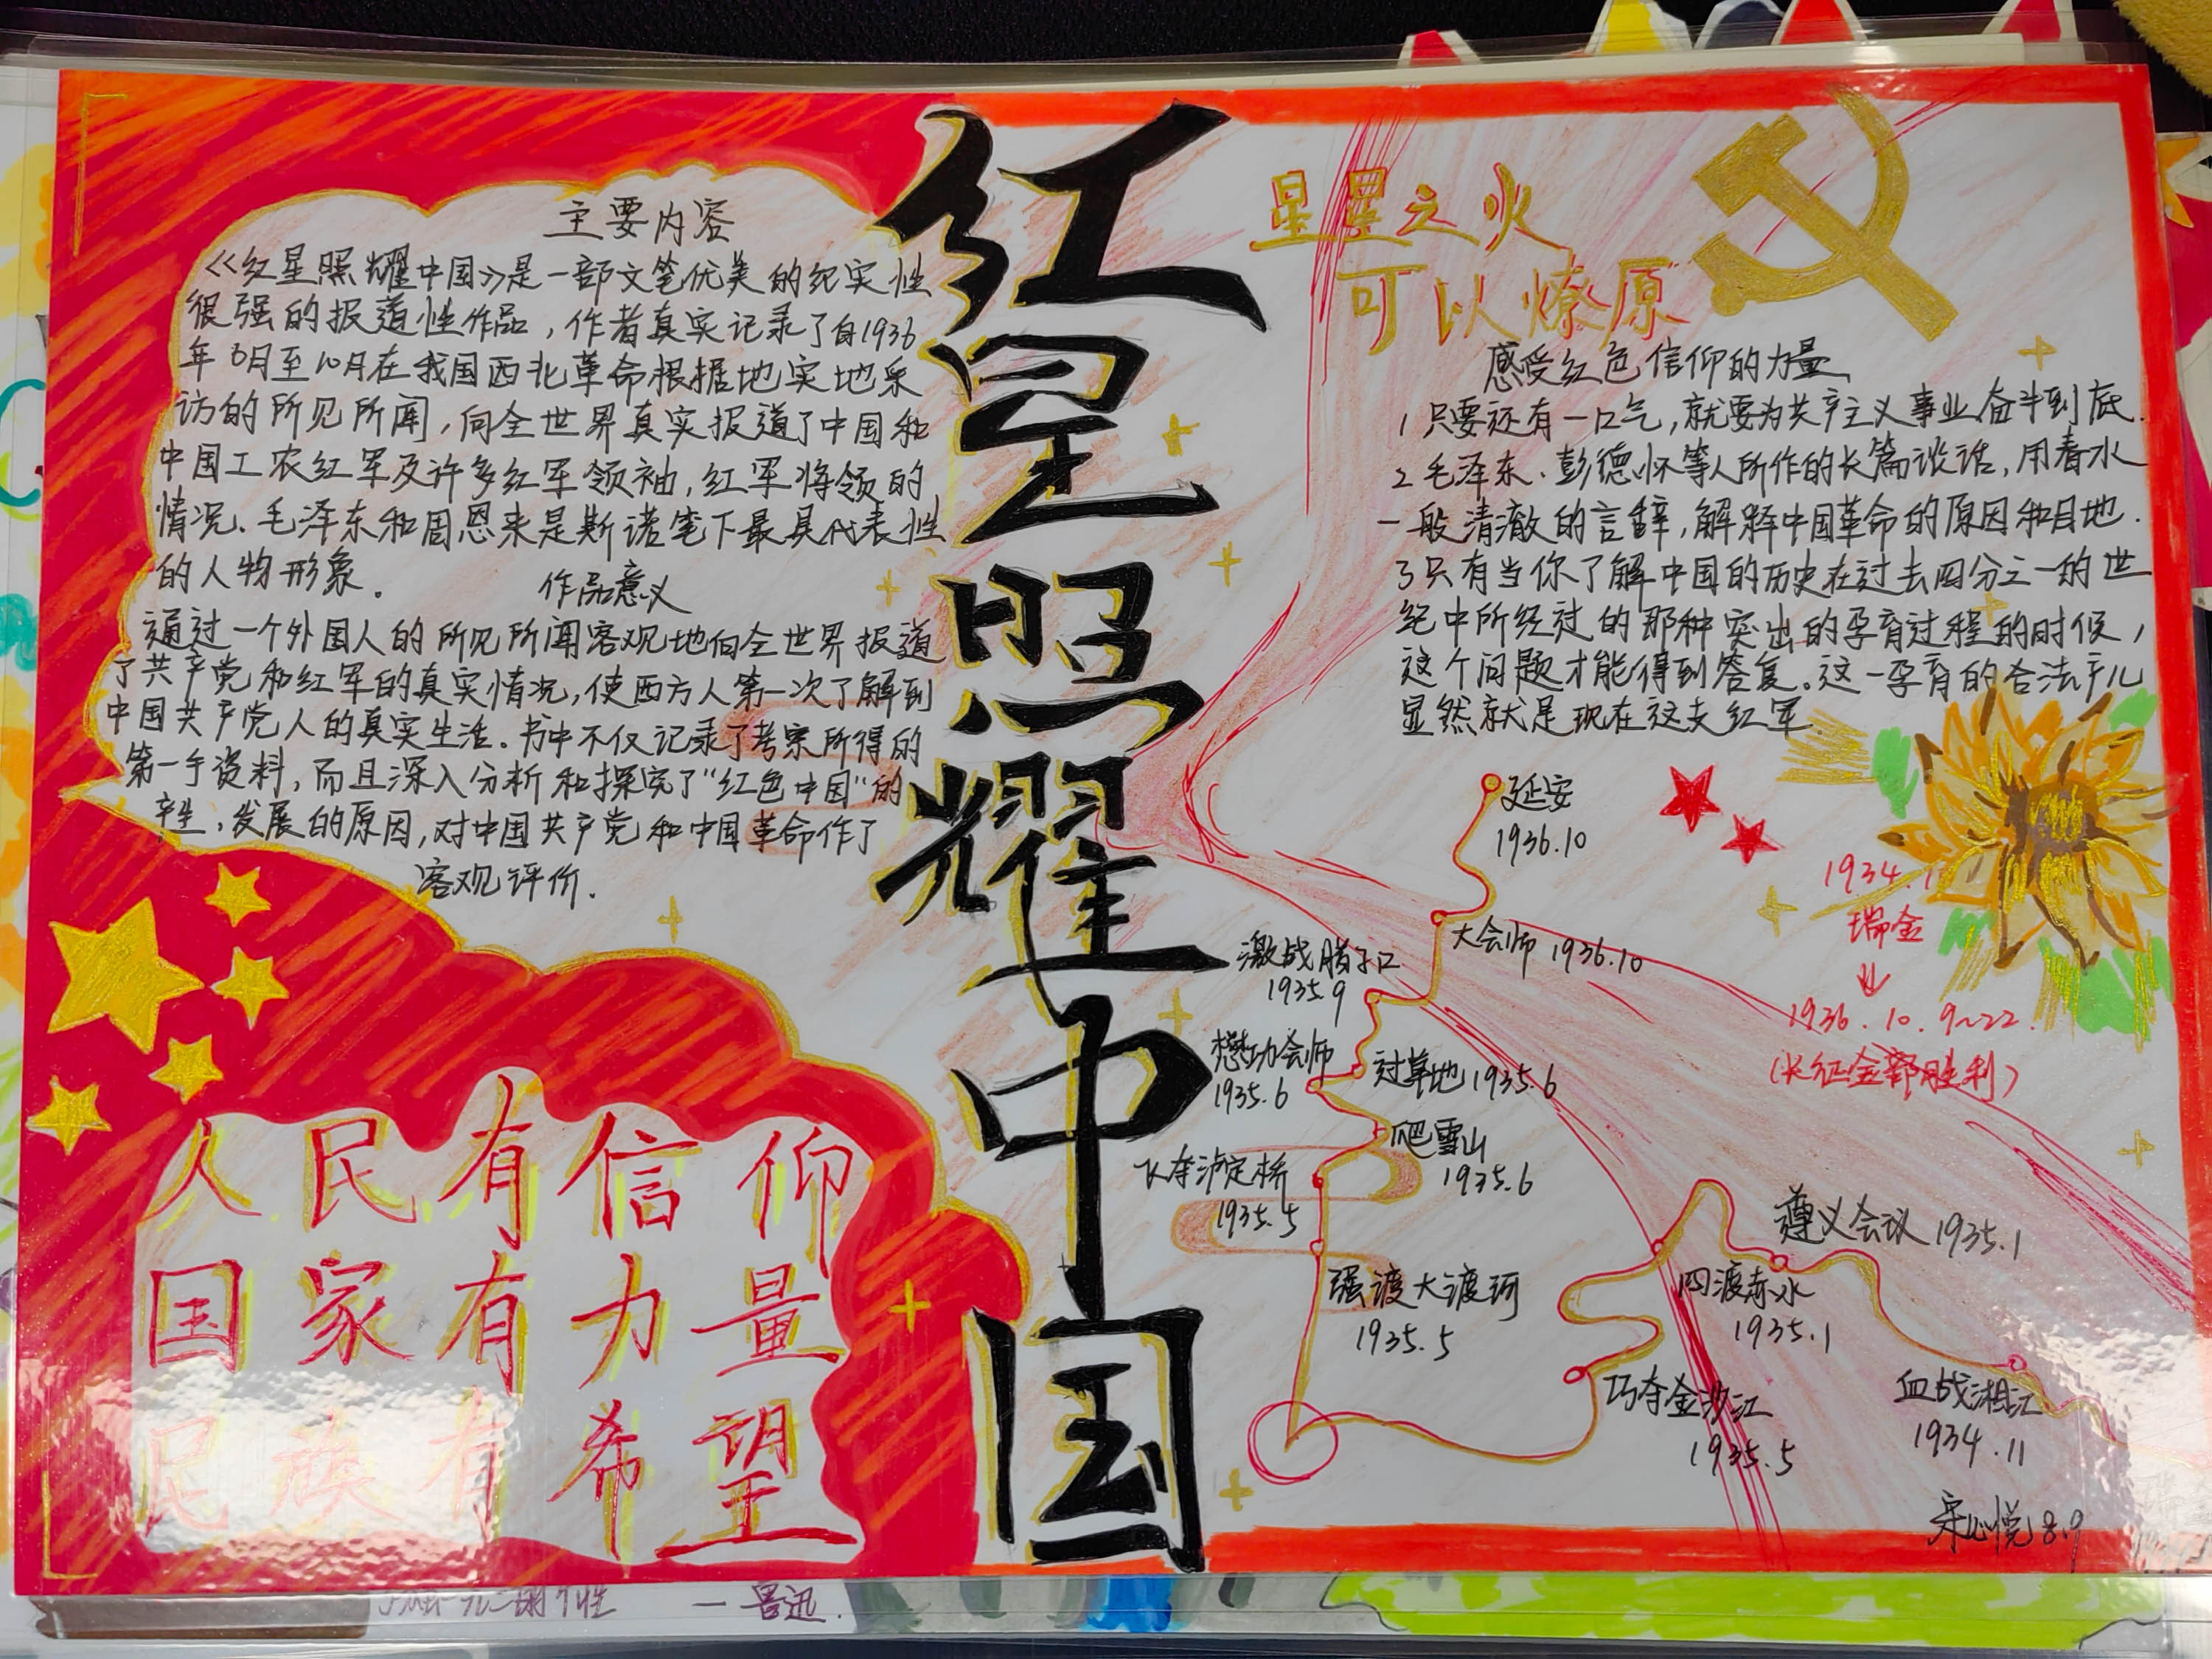 红星照耀中国
主要内容
《红星照耀中国》是一部文笔优美的纪实性
很强的报道性作品，作者真实记录了自1936
年6月至10月在我国西北革命根据地实地采
访的所见所闻，向全世界真实报道了中国和
中国工农红军及许多红军领袖，红军将领的
情况。毛泽东和周恩来是斯诺笔下最具代表性
的人物形象．
作品意义
通过一个外国人的所见所闻客观地向全世界报道
了共产党和红军的真实情况，使西方人第一次了解到
中国共产党人的真实生活。书中不仅记录了考察所得的
第一手资料，而且深入分析和探究了“红色中国”的
产生，发展的原因，对中国共产党和中国革命作了
客观评价．
人民有信仰
国家有力量
民族有希望
星星之火
可以燎原
感受红色信仰的力量
1 只要还有一口气，就要为共产主义事业奋斗到底．
2 毛泽东、彭德怀等人所作的长篇谈话，用春水
一般清澈的言辞，解释中国革命的原因和目地．
3 只有当你了解中国的历史在过去四分之一的世
纪中所经过的那种突出的孕育过程的时候，
这个问题才能得到答复。这一孕育的合法产儿
显然就是现在这支红军．
延安
1936.10
大会师 1936.10
激战腊子口
1935.9
懋功会师
1935.6
过草地 1935.6
爬雪山
1935.6
飞夺泸定桥
1935.5
强渡大渡河
1935.5
遵义会议 1935.1
四渡赤水
1935.1
巧夺金沙江
1935.5
血战湘江
1934.11
1934.1
瑞金
1936.10.9~22.
(长征全部胜利)
宋心悦 8.9
— 鲁迅．